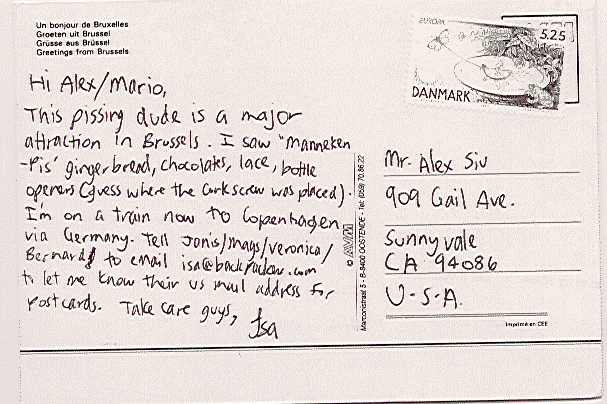 Un bonjour de Bruxelles
Groeten uit Brussel
Grüsse aus Brüssel
Greetings from Brussels
EUROPA
5.25
DANMARK
Hi Alex/Mario,
This pissing dude is a major
attraction in Brussels. I saw "Manneken
-Pis' gingerbread, chocolates, lace, bottle
openers (guess where the corkscrew was placed).
I'm on a train now to Copenhagen
via Germany. Tell Janis/mags/veronica/
Bernard to email isa@backpacker.com
to let me know their us mail address for
postcards. Take care guys,
Isa
Mr. Alex Siu
909 Gail Ave.
Sunnyvale
CA 94086
U-S-A.
Marconistraat 5 - B-8400 OOSTENDE - Tel. (059) 70.86.22
Imprimé en CEE